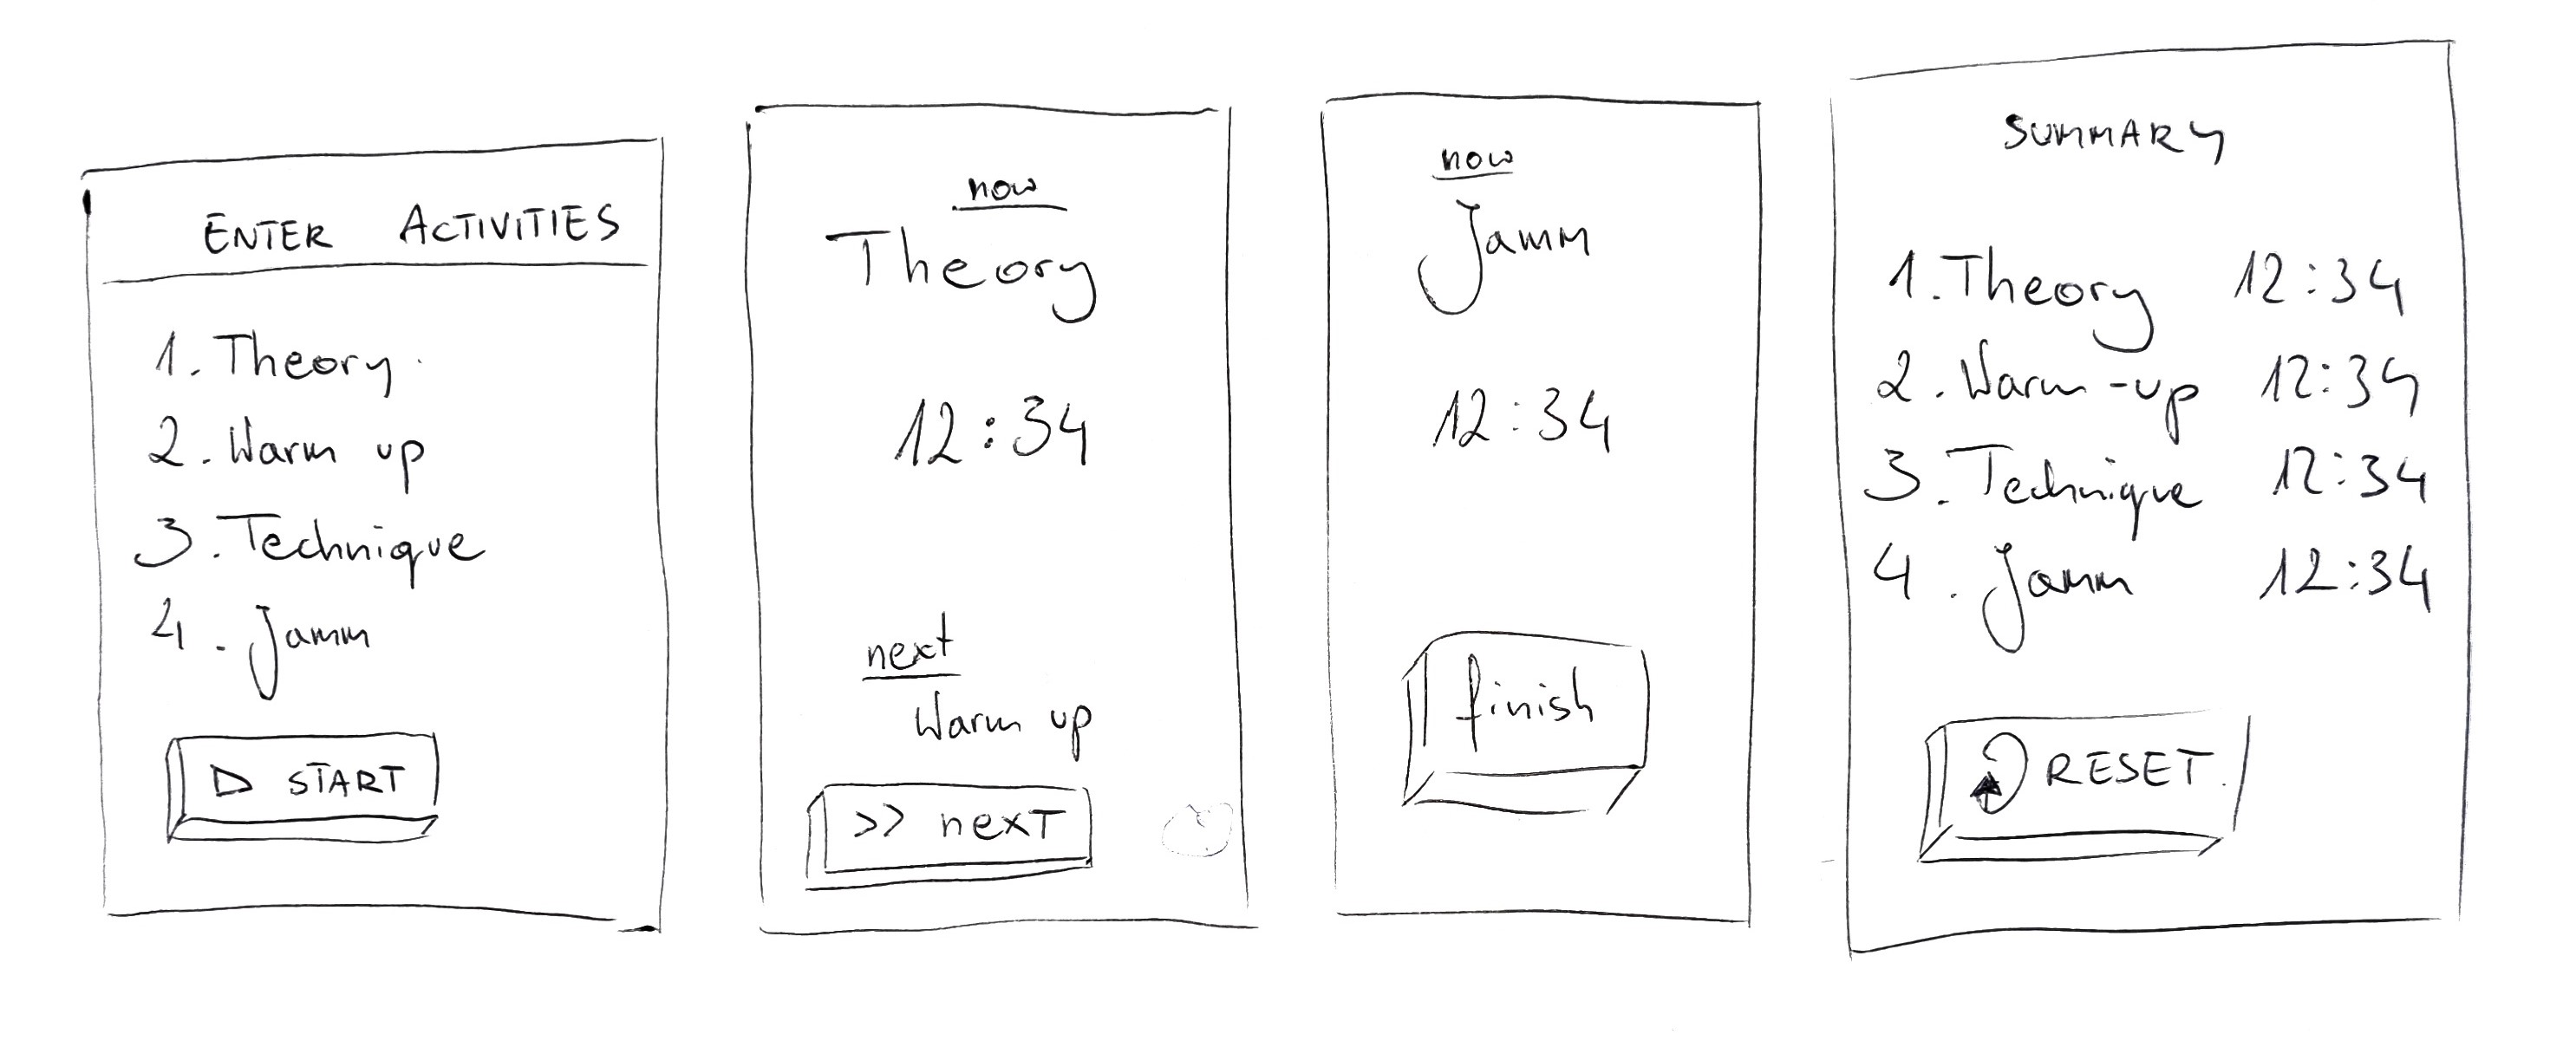 ENTER ACTIVITIES
1. Theory
2. Warm up
3. Technique
4. Jamm
START
now
Theory
12:34
next
Warm up
>> next
now
Jamm
12:34
finish
SUMMARY
1. Theory 12:34
2. Warm-up 12:34
3. Technique 12:34
4. Jamm 12:34
RESET